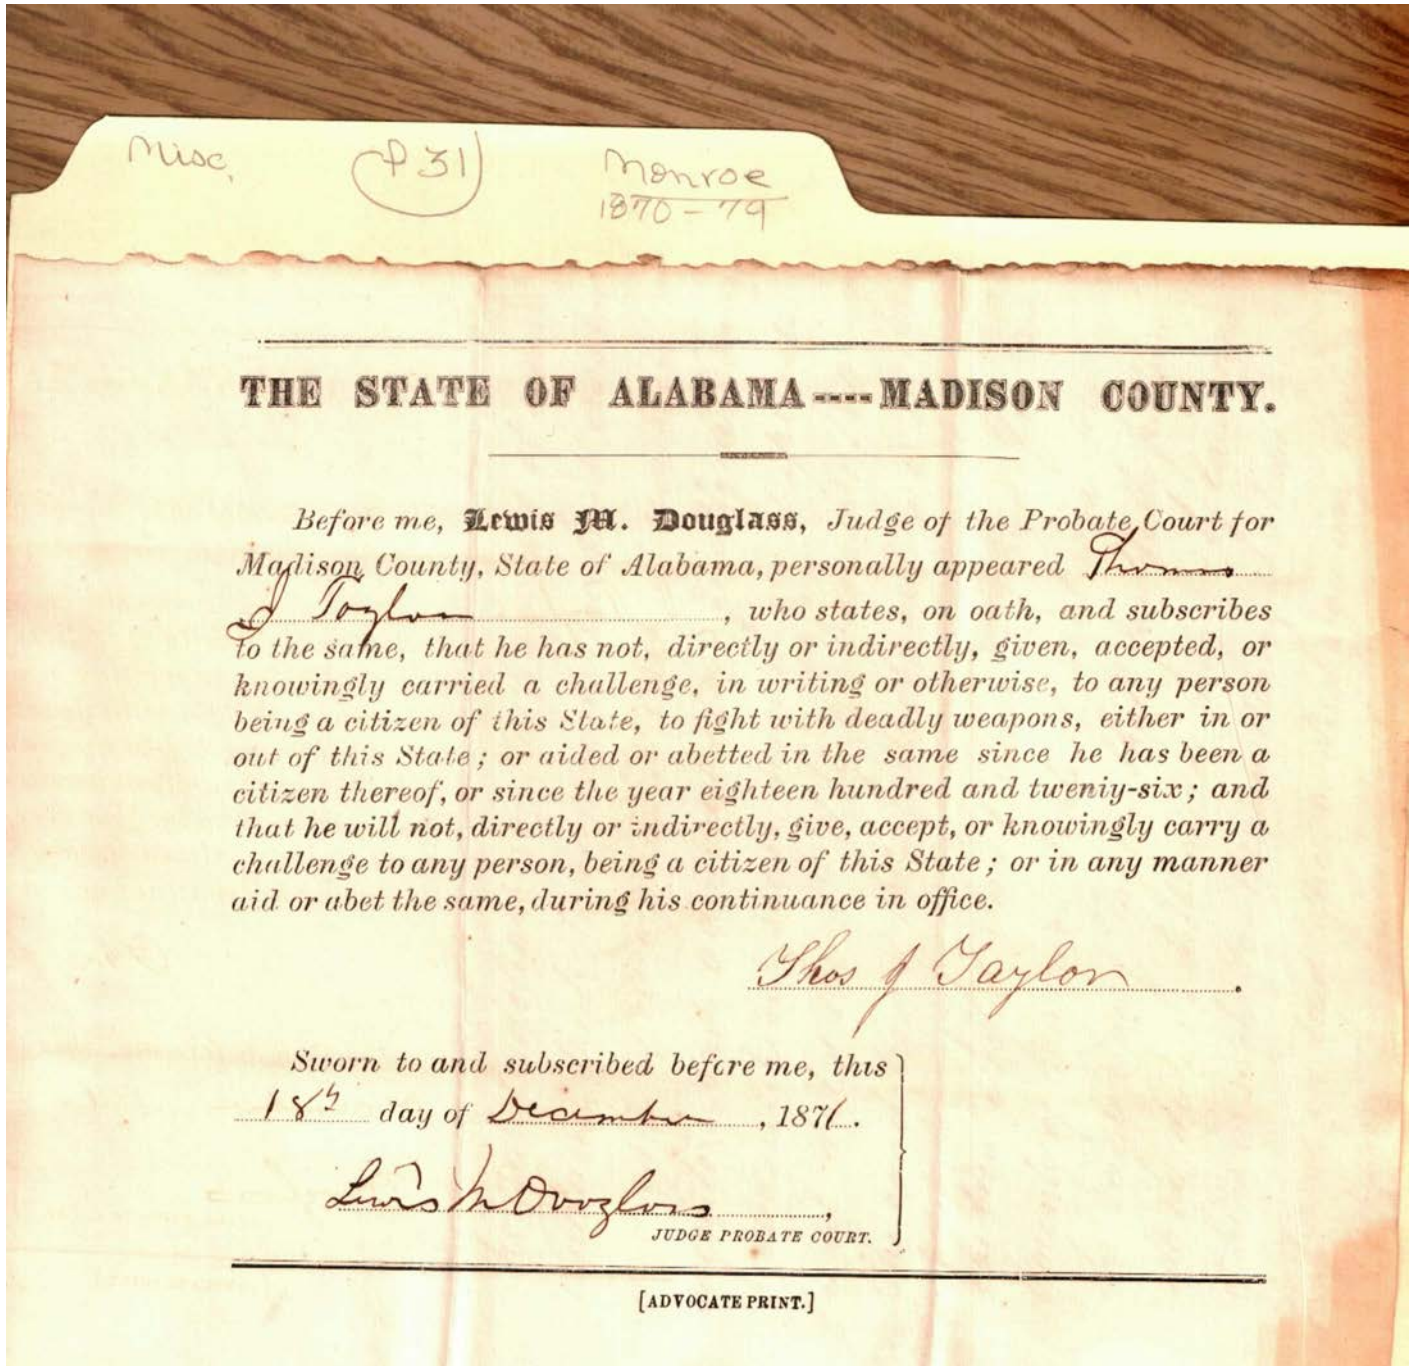 Misc. P31 Monroe
1870-79
THE STATE OF ALABAMA----MADISON COUNTY.
Before me, Lewis M. Douglass, Judge of the Probate Court for
Madison County, State of Alabama, personally appeared Thomas
J Taylor, who states, on oath, and subscribes
to the same, that he has not, directly or indirectly, given, accepted, or
knowingly carried a challenge, in writing or otherwise, to any person
being a citizen of this State, to fight with deadly weapons, either in or
out of this State; or aided or abetted in the same since he has been a
citizen thereof, or since the year eighteen hundred and twenty-six; and
that he will not, directly or indirectly, give, accept, or knowingly carry a
challenge to any person, being a citizen of this State; or in any manner
aid or abet the same, during his continuance in office.
Thos J Taylor.
Sworn to and subscribed before me, this
18th day of December, 1871.
Lewis M Douglass,
JUDGE PROBATE COURT.
[ADVOCATE PRINT.]